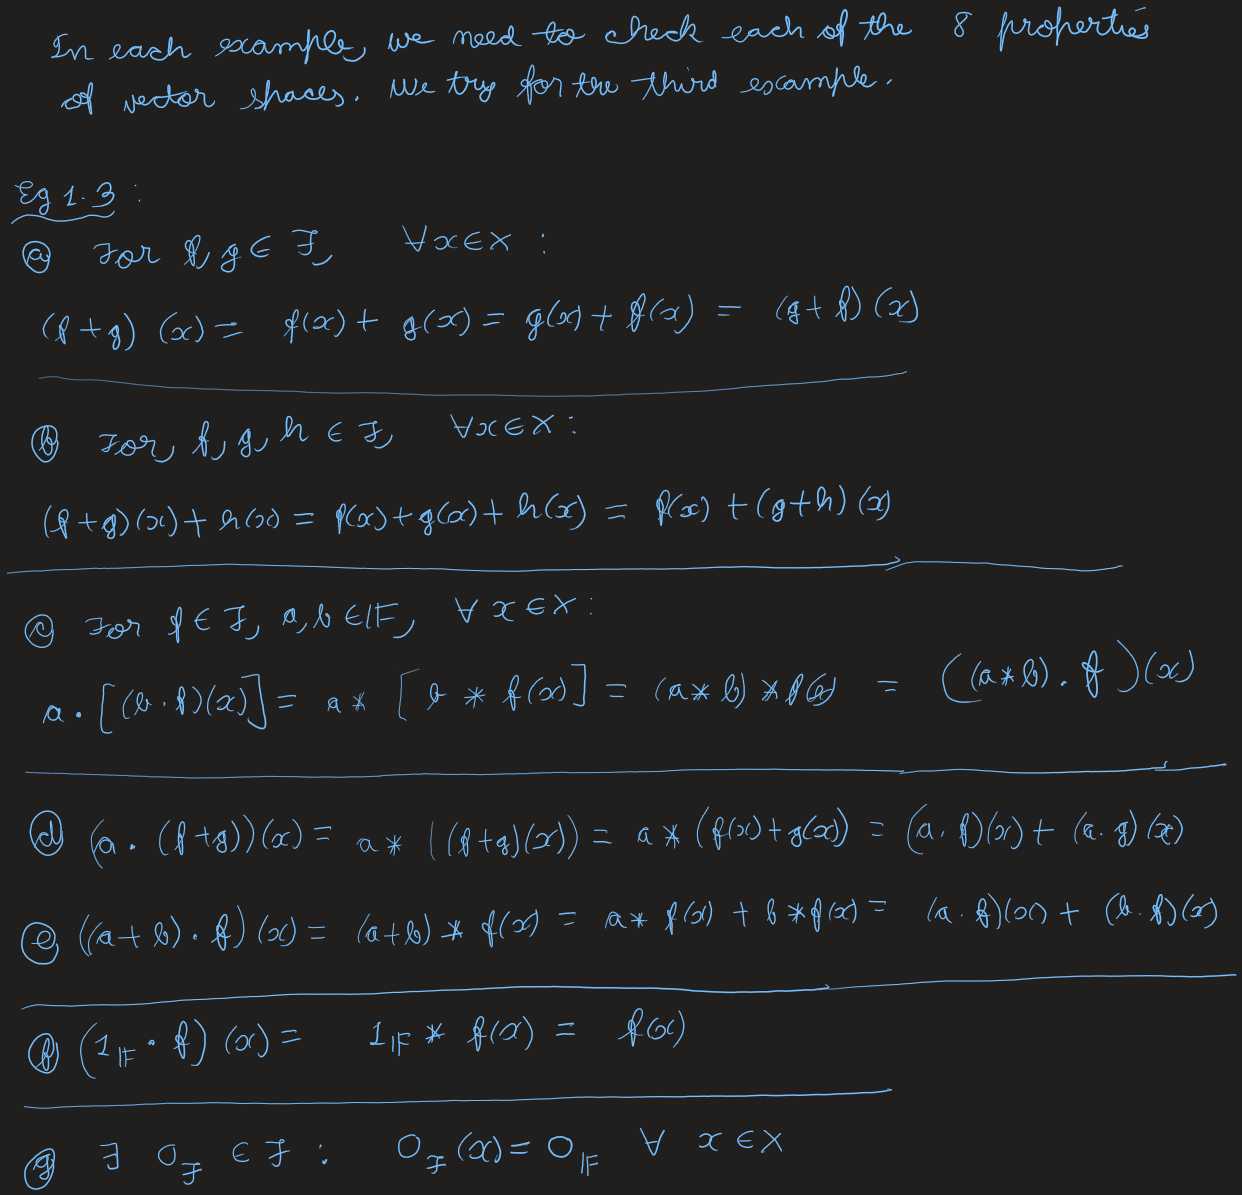 In each example, we need to check each of the 8 properties
of vector spaces. We try for the third example.
Eg 1.3 :
ⓐ For f, g ∈ ℱ, ∀x∈X :
(f+g) (x) = f(x) + g(x) = g(x) + f(x) = (g+f) (x)
ⓑ For, f, g, h ∈ ℱ, ∀x∈X :
(f+g)(x) + h(x) = f(x)+g(x)+h(x) = f(x) + (g+h) (x)
ⓒ For f ∈ ℱ, a, b ∈ 𝔽, ∀ x ∈ X :
a · [(b·f)(x)] = a * [b * f(x)] = (a * b) * f(x) = ((a*b) . f)(x)
ⓓ (a . (f+g))(x) = a * ((f+g)(x)) = a * (f(x)+g(x)) = (a. f)(x) + (a. g)(x)
ⓔ ((a+b) . f)(x) = (a+b) * f(x) = a * f(x) + b * f(x) = (a.f)(x) + (b.f)(x)
ⓕ (1_𝔽 · f) (x) = 1_𝔽 * f(x) = f(x)
ⓖ ∃ 0_ℱ ∈ ℱ : 0_ℱ (x) = 0_𝔽 ∀ x ∈ X